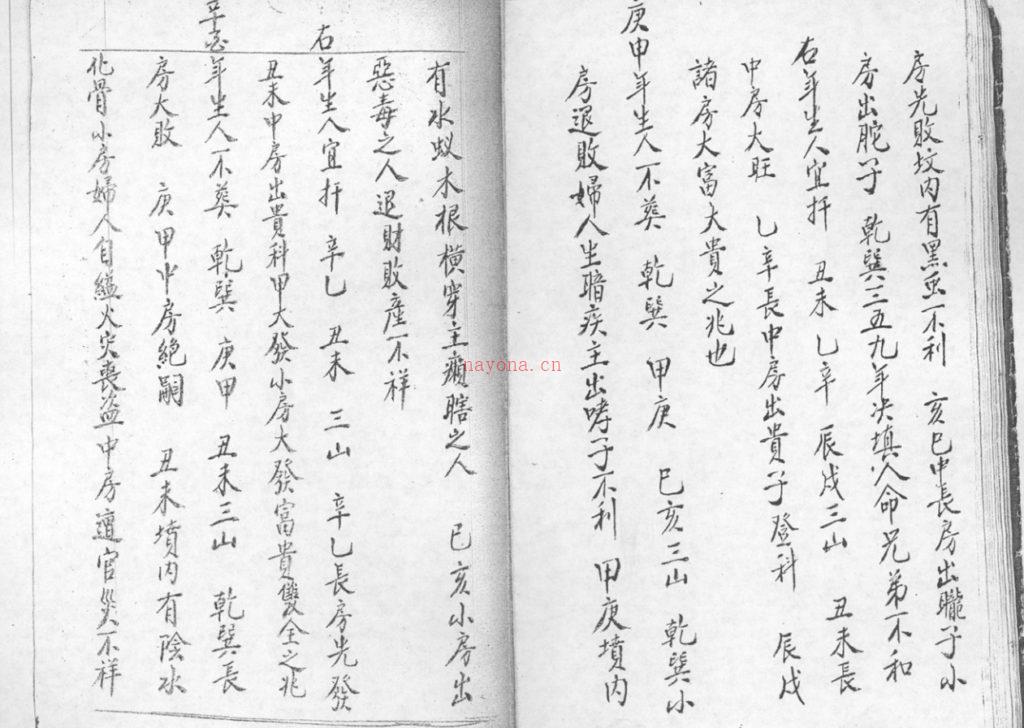 房先敗坟內有黑虫不利 亥巳中長房出聾子小
房出駝子 乾巽三五九年决填人命兄弟不和
右年生人宜扞 丑未 乙辛 辰戌三山 丑未長
中房大旺 乙辛長中房出貴子登科 辰戌
諸房大富大貴之兆也
庚甲年生人不葵 乾巽 甲庚 巳亥三山 乾巽小
房退敗婦人生暗疾主出哮子不利 甲庚墳內
有水蚁木根橫穿主癩瞎之人 巳亥小房出
惡毒之人退財敗產不祥
右年生人宜扞 辛乙 丑未 三山 辛乙長房先發
丑未中房出貴科甲大發小房大發富貴雙全之兆
年生人不葵 乾巽 庚甲 丑未三山 乾巽長
房大敗 庚甲中房絕嗣 丑未墳內有陰水
化骨小房婦人自縊火災喪盜中房遭官災不祥
nayona.cn